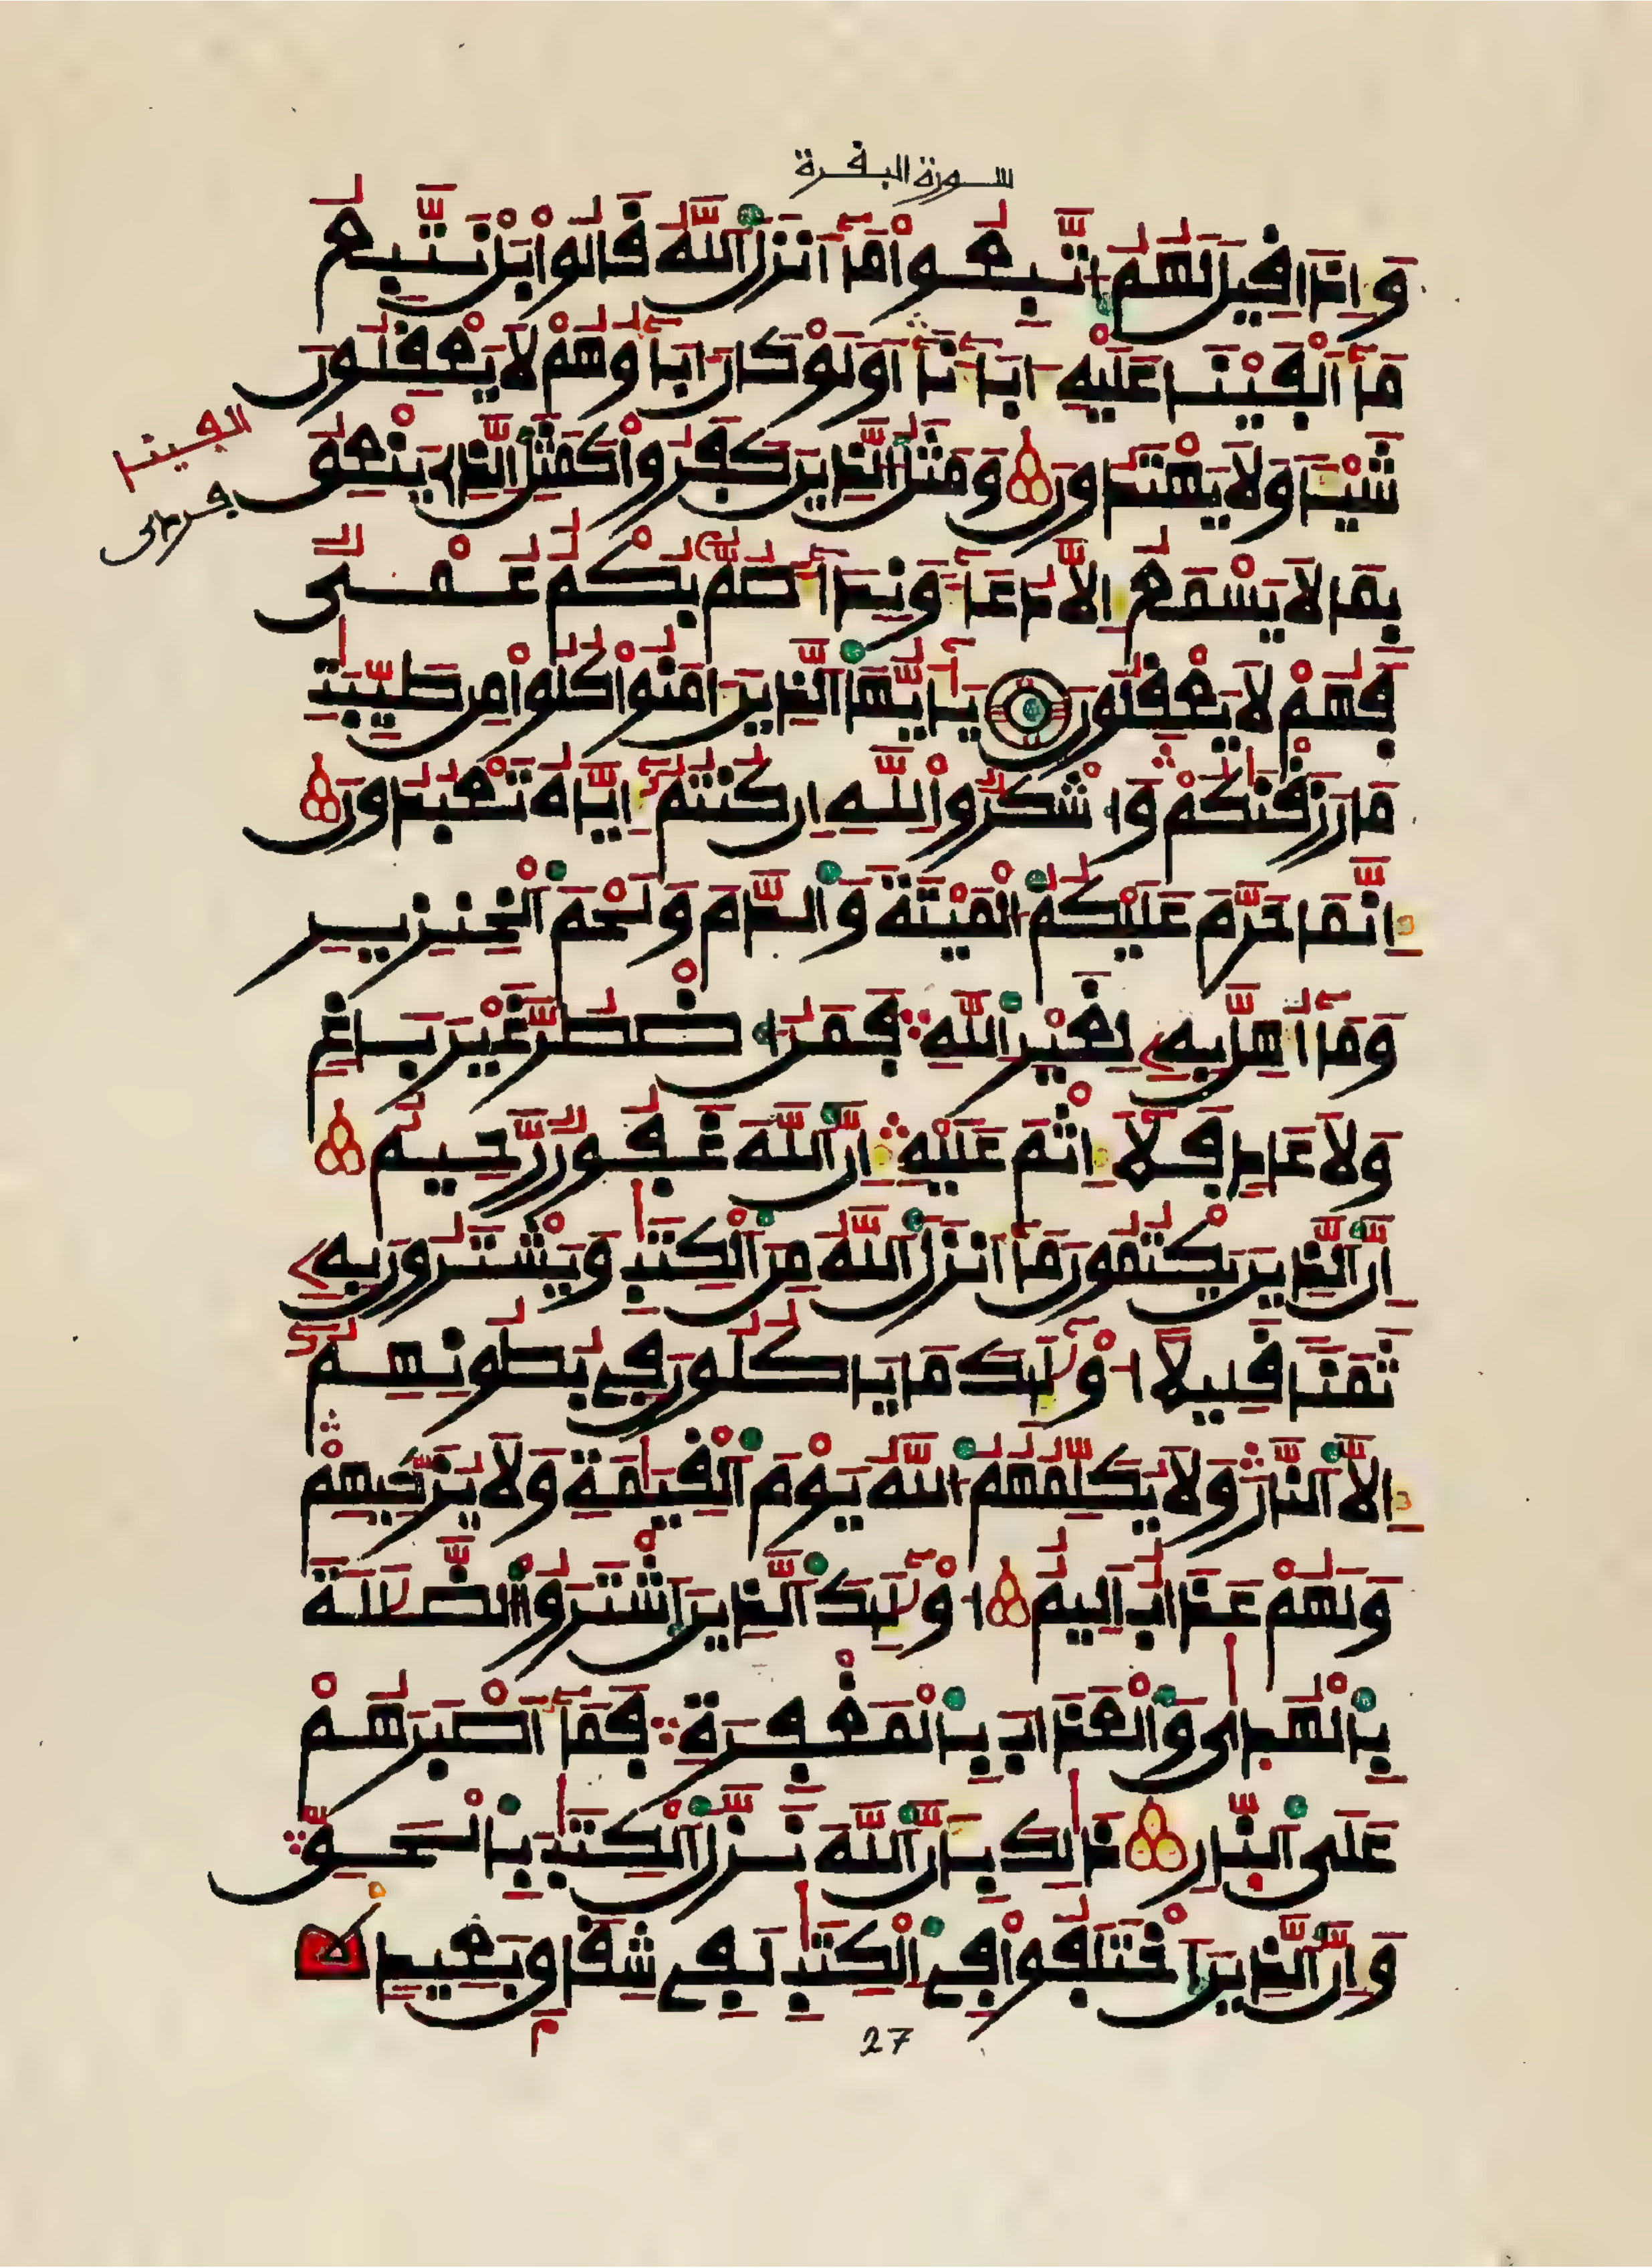 سورة البقرة
وَإِذَا قِيلَ لَهُمُ اتَّبِعُوا مَا أَنزَلَ اللَّهُ قَالُوا بَلْ نَتَّبِعُ
مَا أَلْفَيْنَا عَلَيْهِ ءَابَاءَنَا أَوَلَوْ كَانَ ءَابَاؤُهُمْ لَا يَعْقِلُونَ
شَيْئًا وَلَا يَهْتَدُونَ وَمَثَلُ الَّذِينَ كَفَرُوا كَمَثَلِ الَّذِي يَنْعِقُ
بِمَا لَا يَسْمَعُ إِلَّا دُعَاءً وَنِدَاءً صُمٌّ بُكْمٌ عُمْيٌ
فَهُمْ لَا يَعْقِلُونَ يَا أَيُّهَا الَّذِينَ ءَامَنُوا كُلُوا مِن طَيِّبَٰتِ
مَا رَزَقْنَٰكُمْ وَاشْكُرُوا لِلَّهِ إِن كُنتُمْ إِيَّاهُ تَعْبُدُونَ
إِنَّمَا حَرَّمَ عَلَيْكُمُ الْمَيْتَةَ وَالدَّمَ وَلَحْمَ الْخِنزِيرِ
وَمَا أُهِلَّ بِهِ لِغَيْرِ اللَّهِ فَمَنُ اضْطُرَّ غَيْرَ بَاغٍ
وَلَا عَادٍ فَلَا إِثْمَ عَلَيْهِ إِنَّ اللَّهَ غَفُورٌ رَّحِيمٌ
إِنَّ الَّذِينَ يَكْتُمُونَ مَا أَنزَلَ اللَّهُ مِنَ الْكِتَٰبِ وَيَشْتَرُونَ بِهِ
ثَمَنًا قَلِيلًا أُوْلَٰئِكَ مَا يَاكُلُونَ فِي بُطُونِهِمُ
إِلَّا النَّارَ وَلَا يُكَلِّمُهُمُ اللَّهُ يَوْمَ الْقِيَٰمَةِ وَلَا يُزَكِّيهِمْ
وَلَهُمْ عَذَابٌ أَلِيمٌ أُوْلَٰئِكَ الَّذِينَ اشْتَرَوُا الضَّلَٰلَةَ
بِالْهُدَىٰ وَالْعَذَابَ بِالْمَغْفِرَةِ فَمَا أَصْبَرَهُمْ
عَلَى النَّارِ ذَٰلِكَ بِأَنَّ اللَّهَ نَزَّلَ الْكِتَٰبَ بِالْحَقِّ
وَإِنَّ الَّذِينَ اخْتَلَفُوا فِي الْكِتَٰبِ لَفِي شِقَاقٍ بَعِيدٍ
27
الفينا